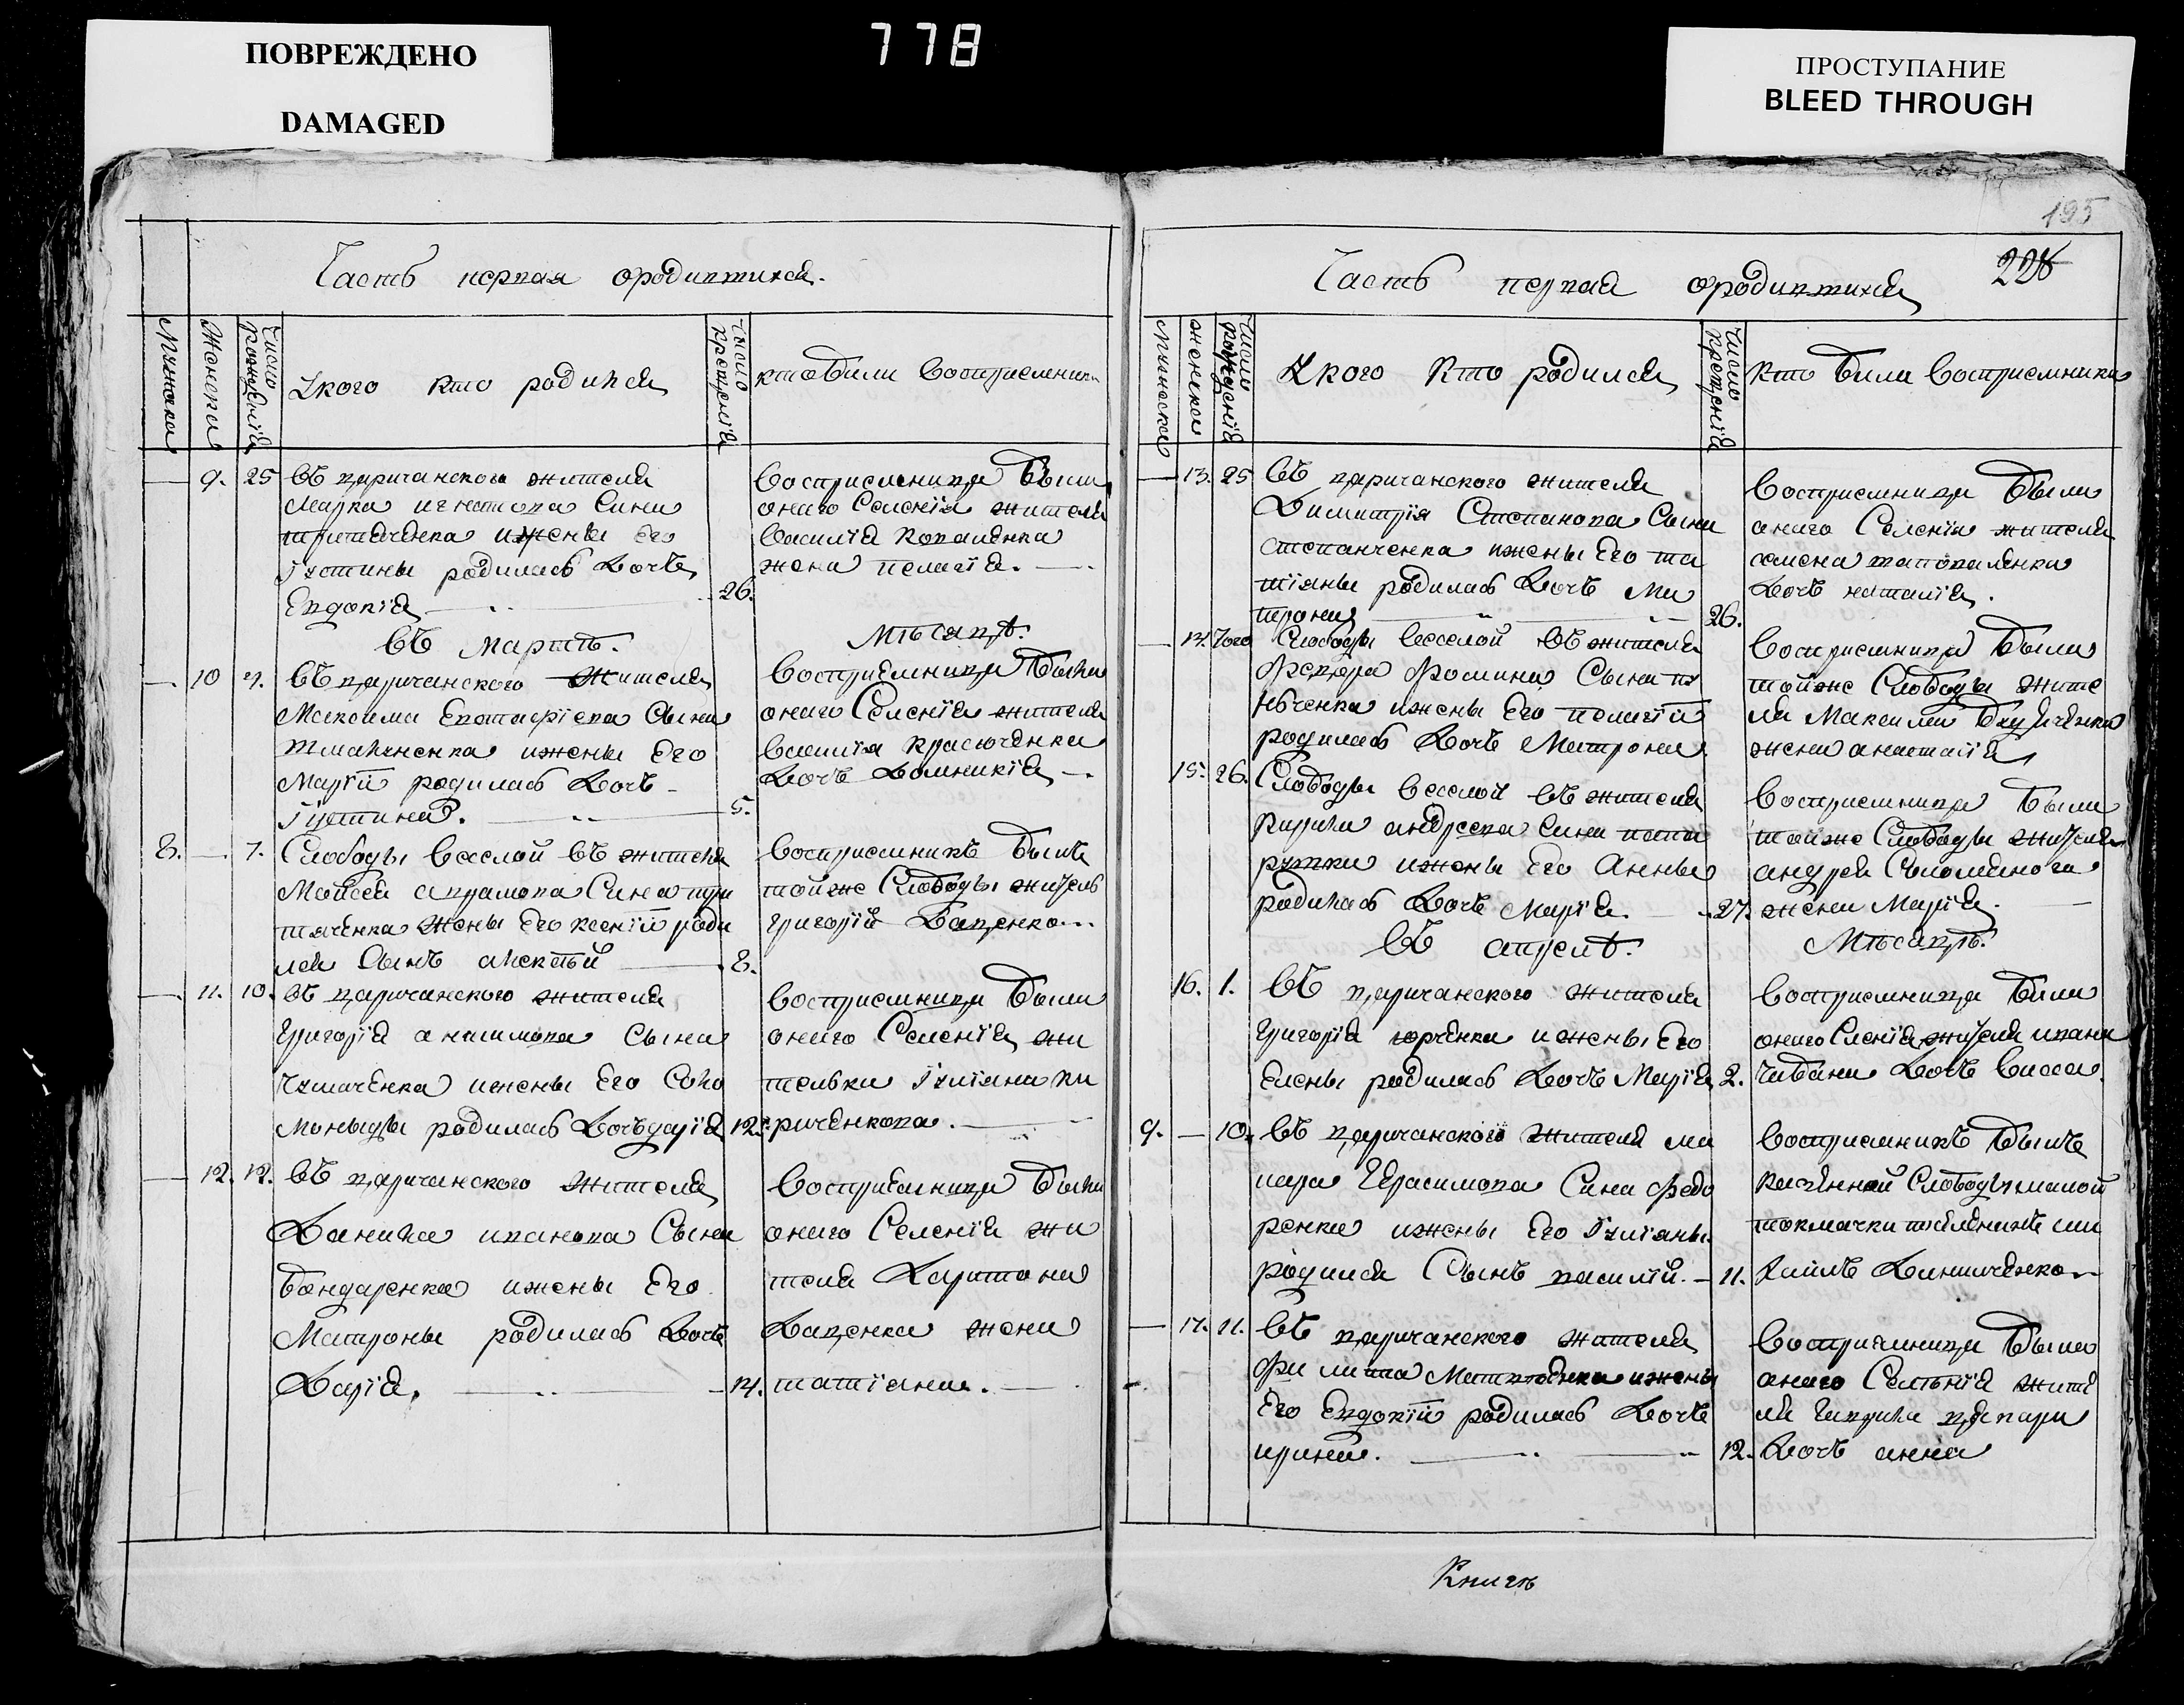 ПОВРЕЖДЕНО
DAMAGED
778
ПРОСТУПАНИЕ
BLEED THROUGH
Часть первая ородившихся.
Мужеска
Женска
Число рождения
Укого кто родился
Число крещенія
кто Били Восприемники
9. 25 въ царичанского жителя
Марка игнатова Сина
притыченка ижены Его
Іустины родилась Дочь
Евдокія 26.
Восприемница Были
онаго Селенія жителя
Василія Коваленка
жена пелагія.
Въ Мартъ. Мѣсяцѣ.
10 4. въ царичанского жителя
Максима Евстафіева Сына
ижены Его
Марїи родилась Дочь
Іустина. 5.
Восприемница Была
онаго Селенія жителя
Василія Красюченка
Дочь Домникія
8. 7. Слободы Веселой въ жителя
Мойсея аврамова Сина при
тыченка жены Его ксеніи роди
лся Сынъ алексѣй 8.
Восприемникъ Былъ
тойже Слободы житель
григорій Баценко
11. 10. въ царичанского жителя
Григорія анисимова Сына
Чумаченка ижены Его Соло
моныды родилась Дочь дарія 12.
Восприемница Были
онаго Селенія жи
телька Іуліана ки
риченкова.
12. 12. въ царичанского жителя
Данила иванова Сына
Бондаренка ижены Его
Матроны родилась Дочь
Дарія. 14.
Восприемница Была
онаго Селенія жи
теля Харитона
Даценка жена
татіана.
195
228
Часть первая ородившихся
Мужеска
женска
Число рожденія
Укого Кто родился
Число крещенія
Кто Били Восприемники
13. 25 въ царичанского жителя
Димитрія Степанова Сына
степанченка ижены Его та
тіяны родилась Дочь Ма
трона 26.
Восприемница Были
онаго Селенія жителя
семена шаповаленка
Дочь наталія.
14. Того Слободы Веселой въ жителя
Феодора Фомина Сына
ижены Его пелагіи
родилась Дочь Матрона
Восприемница Были
тойже Слободы жите
ля Максима
жена анастасія
15. 26. Слободы Веселой въ жителя
Кирила андреева Сина папа
рутки ижены Его Анны
родилась Дочь Марія. 27.
Восприемница Были
тойже Слободы жителя
андрея
жена Марія.
Въ апрелѣ. Мѣсяцѣ.
16. 1. Въ царичанского жителя
Григорія юрченка ижены Его
Елены родилась Дочь Марія 2.
Восприемница Были
онаго Селенія жителя ивана
Чабана Дочь Васса.
9. 10. въ царичанского жителя ма
кара Герасимова Сина федо
ренка ижены Его Іуліяны
родился Сынъ василій. 11.
Восприемникъ Былъ
казенной Слободы малой
токмачки поселянинъ ми
хаилъ Данильченко
17. 11. Въ царичанского жителя
филипа ижены
Его Евдокіи родилась Дочь
ирина. 12.
Восприемница Были
онаго Селенія жите
ля гаврила
Дочь анна
Книгъ